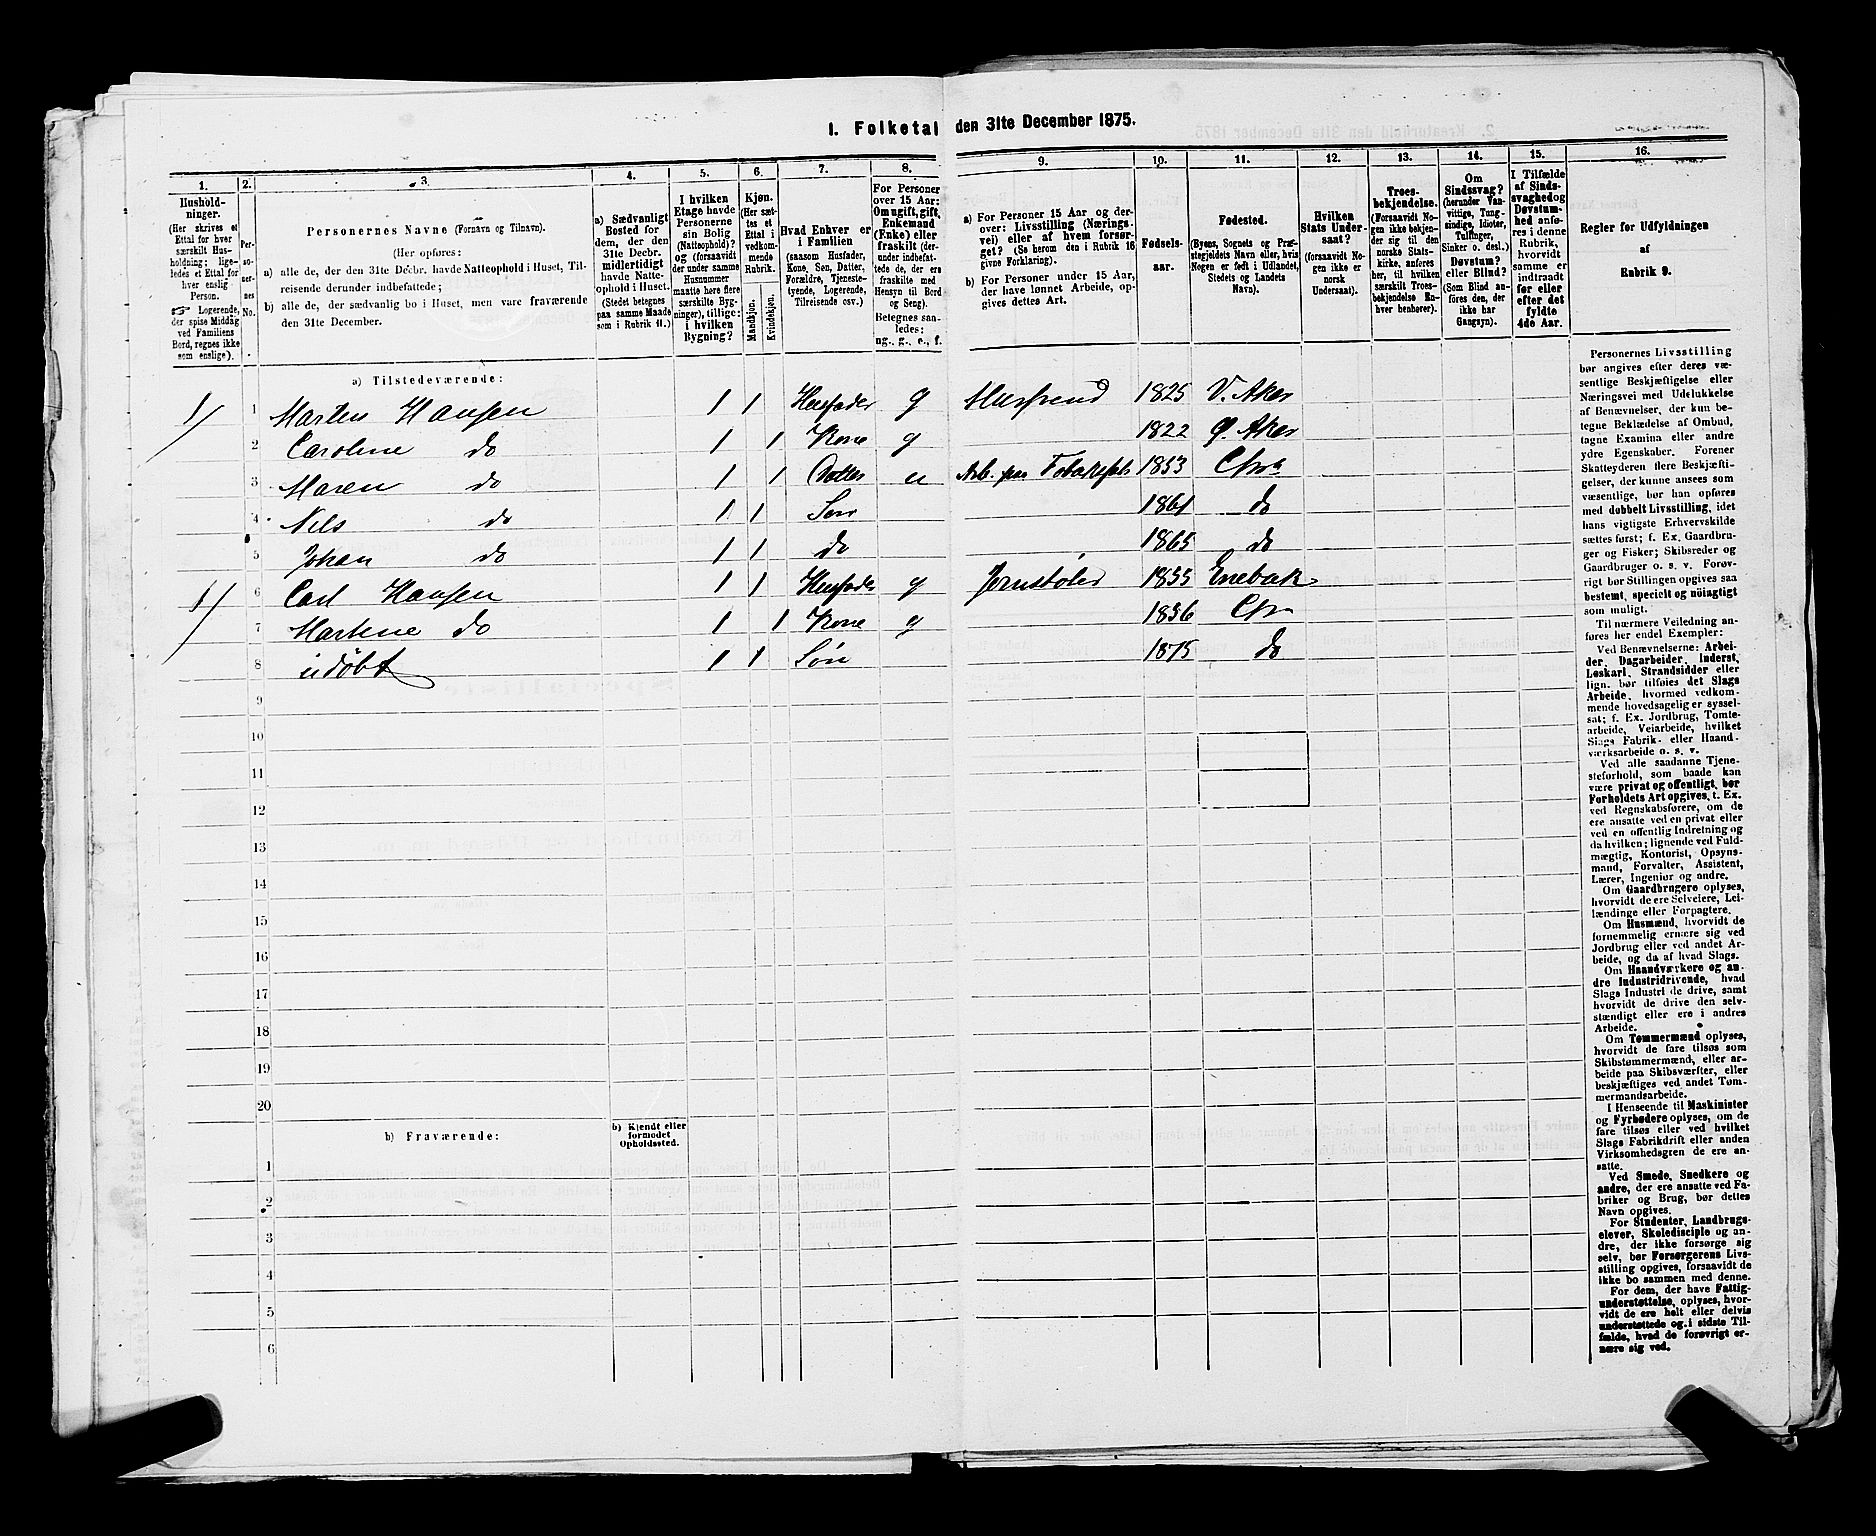 I. Folketal den 31te December 1875.
1. 2. 3. 4. 5. 6. 7. 8. 9. 10. 11. 12. 13. 14. 15. 16.
Hushold-
ninger.
(Her skrives et
Ettal for hver
særskilt Hus-
holdning; lige-
ledes et Ettal for
hver enslig
Person.
☞ Logerende,
der spise Middag
ved Familiens
Bord, regnes ikke
som enslige).
Per-
so-
ner-
nes
No.
Personernes Navne (Fornavn og Tilnavn).
(Her opføres:
a) alle de, der den 31te Decbr. havde Natteophold i Huset, Til-
reisende derunder indbefattede;
b) alle de, der sædvanlig bo i Huset, men vare fraværende
den 31te December.
a) Sædvanligt
Bosted for
dem, der den
31te Decbr.
midlertidigt
havde Natte-
ophold i Huset.
(Stedet betegnes
paa samme Maade
som i Rubrik 11.)
I hvilken
Etage havde
Personerne
sin Bolig
(Natteophold)?
og (forsaavidt
der under samme
Husnummer
maatte høre flere
særskilte Byg-
ninger), tillige:
i hvilken
Bygning?
Kjøn.
(Her sæt-
tes et
Ettal i
vedkom-
mende
Rubrik.
Mandkjøn.
Kvindekjøn.
Hvad Enhver er
i Familien
(saasom Husfader,
Kone, Søn, Datter,
Forældre, Tjeneste-
tyende, Logerende,
Tilreisende osv.)
For Personer
over 15 Aar:
Om ugift, gift,
Enkemand
(Enke) eller
fraskilt (der-
under indbefat-
tede de, der ere
fraskilte med
Hensyn til Bord
og Seng).
Betegnes saa-
ledes:
ug., g., e., f.
a) For Personer 15 Aar og der-
over: Livsstilling (Nærings-
vei) eller af hvem forsør-
get? (Se herom den i Rubrik 16
givne Forklaring).
b) For Personer under 15 Aar,
der have lønnet Arbeide, op-
gives dettes Art.
Fødsels-
aar.
Fødested.
(Byens, Sognets og Præ-
stegjeldets Navn eller, hvis
Nogen er født i Udlandet,
Stedets og Landets
Navn).
Hvilken
Stats Under-
saat?
(forsaavidt No-
gen ikke er
norsk
Undersaat).
Troes-
bekjendelse.
(Forsaavidt No-
gen ikke bekjen-
der sig til den
norske Stats-
kirke, anføres
her, til hvilken
særskilt Troes-
bekjendelse En-
hver henhører).
Om
Sindssvag?
(herunder Van-
vittige, Tung-
sindige, Idioter,
Tullinger,
Sinker o. desl.)
Døvstum?
eller Blind?
(Som Blind an-
føres den, der
ikke har
Gangsyn).
I Tilfælde
af Sinds-
svaghed og
Døvstum-
hed anfø-
res i denne
Rubrik,
hvorvidt
samme er
indtraadt
før eller
efter det
fyldte
4de Aar.
Regler for Udfyldningen
af
Rubrik 9.
a) Tilstedeværende:
1/ 1 Marten Hansen 1 1 Husfader g Husfrend 1825 V. Aker
2 Caroline do 1 1 Kone g 1822 Ø. Aker
3 Maren do 1 1 Datter u Arb. paa Tobaksfab 1853 Chra
4 Nils do 1 1 Søn 1861 do
5 Johan do 1 1 do 1865 do
1/ 6 Carl Hansen 1 1 Husfader g Jernstøber 1855 Enebak
7 Martine do 1 1 Kone g 1856 Chr
8 udøbt 1 1 Søn 1875 do
9
10
11
12
13
14
15
16
17
18
19
20
b) Fraværende:
b) Kjendt eller
formodet
Opholdssted.
1
2
3
4
5
6
Personernes Livsstilling
bør angives efter deres væ-
sentlige Beskjæftigelse eller
Næringsvei med Udelukkelse
af Benævnelser, der kun be-
tegne Beklædelse af Ombud,
tagne Examina eller andre
ydre Egenskaber. Forener
Skatteyderen flere Beskjæfti-
gelser, der kunne ansees som
væsentlige, bør han opføres
med dobbelt Livsstilling, idet
hans vigtigste Erhvervskilde
sættes først; f. Ex. Gaardbru-
ger og Fisker; Skibsreder og
Gaardbruger o. s. v. Forøv-
rigt bør Stillingen opgives saa
bestemt, specielt og nöiagtigt
som muligt.
Til nærmere Veiledning an-
føres her endel Exempler:
Ved Benævnelserne: Arbei-
der, Dagarbeider, Inderst,
Løskarl, Strandsidder eller
lign. bør tilføies det Slags
Arbeide, hvormed vedkom-
mende hovedsagelig er syssel-
sat; f. Ex. Jordbrug, Tomte-
arbeide, Veiarbeide, hvilket
Slags Fabrik- eller Haand-
værksarbeide o. s. v.
Ved alle saadanne Tjene-
steforhold, som baade kan
være privat og offentligt, bør
Forholdets Art opgives, t. Ex.
ved Regnskabsførere, om de
ere ansatte ved en privat eller
ved en offentlig Indretning og
da hvilken; lignende ved Fuld-
mægtig, Kontorist, Opsyns-
mand, Forvalter, Assistent,
Lærer, Ingeniør og andre.
Om Gaardbrugere oplyses,
hvorvidt de ere Selveiere, Lei-
lændinge eller Forpagtere.
Om Husmænd, hvorvidt de
fornemmelig ernære sig ved
Jordbrug eller ved andet Ar-
beide, og da af hvad Slags.
Om Haandværkere og an-
dre Industridrivende, hvad
Slags Industri de drive, samt
hvorvidt de drive den selv-
stændigt eller ere i andres
Arbeide.
Om Tømmermænd oplyses,
hvorvidt de fare tilsøs som
Skibstømmermænd, eller ar-
beide paa Skibsværfter, eller
beskjæftiges ved andet Tøm-
mermandsarbeide.
I Henseende til Maskinister
og Fyrbødere oplyses, om de
fare tilsøs eller ved hvilket
Slags Fabrikdrift eller anden
Virksomhedsgren de ere an-
satte.
Ved Smede, Snedkere og
andre, der ere ansatte ved Fa-
briker og Brug, bør dettes
Navn opgives.
For Studenter, Landbrugs-
elever, Skoledisciple og an-
dre, der ikke forsørge sig
selv, bør Forsørgerens Livs-
stilling opgives, forsaavidt de
ikke bo sammen med denne.
For dem, der have Fattig-
understøttelse, oplyses, hvor-
vidt de ere helt eller delvis
understøttede og i sidste Til-
fælde, hvad de forøvrigt er-
nære sig ved.